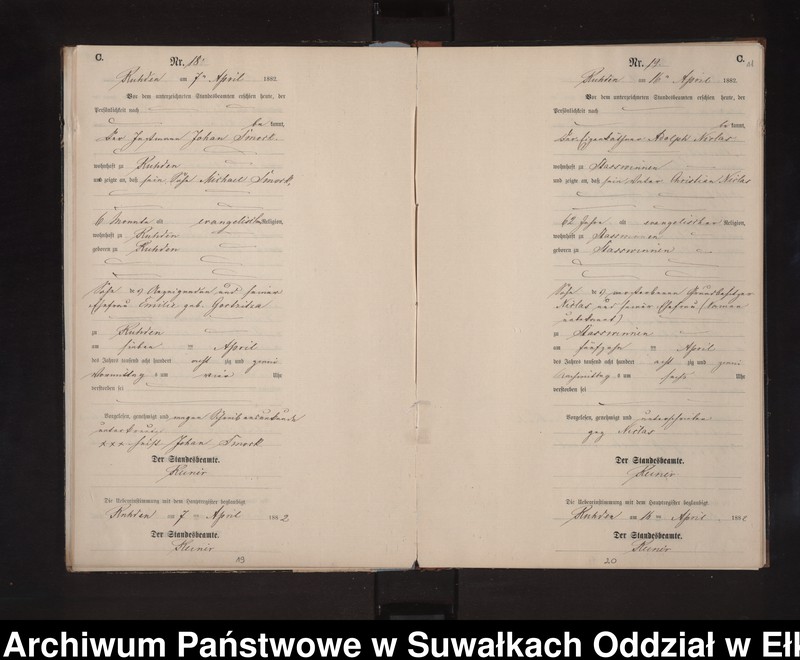 C.
Nr. 18.
Ruhden am 7ten April 1882.
Vor dem unterzeichneten Standesbeamten erschien heute, der
Persönlichkeit nach
be kannt,
Der Johan Smoch
wohnhaft zu Ruhden
und zeigte an, daß sein Sohn Michael Smoch,
6 Monate alt evangelischer Religion,
wohnhaft zu Ruhden
geboren zu Ruhden
Sohn des und seiner
Ehefrau Emilie geb.
zu Ruhden
am sieben ten April
des Jahres tausend acht hundert acht zig und zwei
Vormittags um Uhr
verstorben sei
Vorgelesen, genehmigt und wegen
xxx Johan Smoch
Der Standesbeamte.
Die Uebereinstimmung mit dem Hauptregister beglaubigt
Ruhden am 7 ten April 1882
Der Standesbeamte.
19
C.
Nr. 19.
Ruhden am 16ten April 1882.
Vor dem unterzeichneten Standesbeamten erschien heute, der
Persönlichkeit nach
be kannt,
Der Eigenkäthner Adolph Niclas
wohnhaft zu
und zeigte an, daß sein Vater Christian Niclas
62 Jahre alt evangelischer Religion,
wohnhaft zu
geboren zu
Sohn des verstorbenen Grundbesitzer
Niclas und seiner Ehefrau (Namen
unbekannt)
zu
am fünfzehn ten April
des Jahres tausend acht hundert acht zig und zwei
Nachmittags um sechs Uhr
verstorben sei
Vorgelesen, genehmigt und unterschrieben
gez Niclas
Der Standesbeamte.
Die Uebereinstimmung mit dem Hauptregister beglaubigt
Ruhden am 16 ten April 1882
Der Standesbeamte.
20
Archiwum Państwowe w Suwałkach Oddział w Ełk